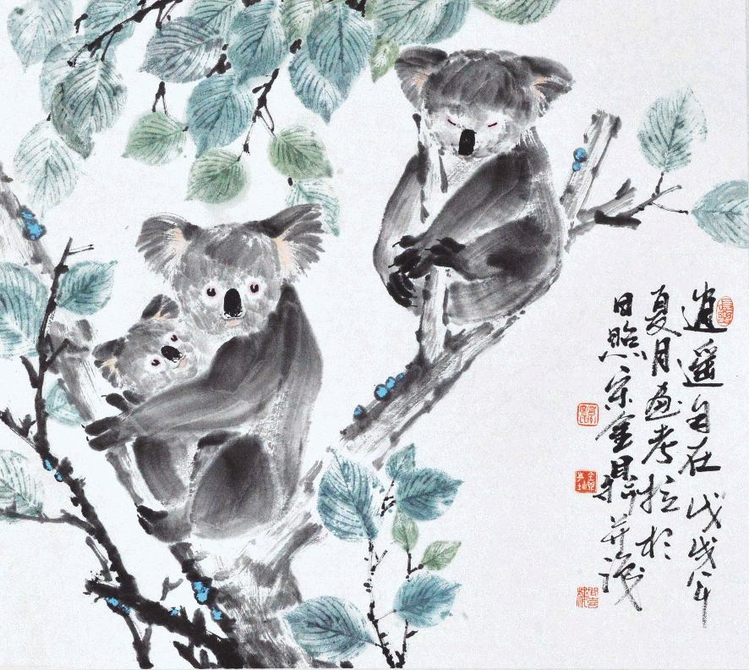 逍遥自在戊戌年
夏月画考拉於
日照宋金鼎并识